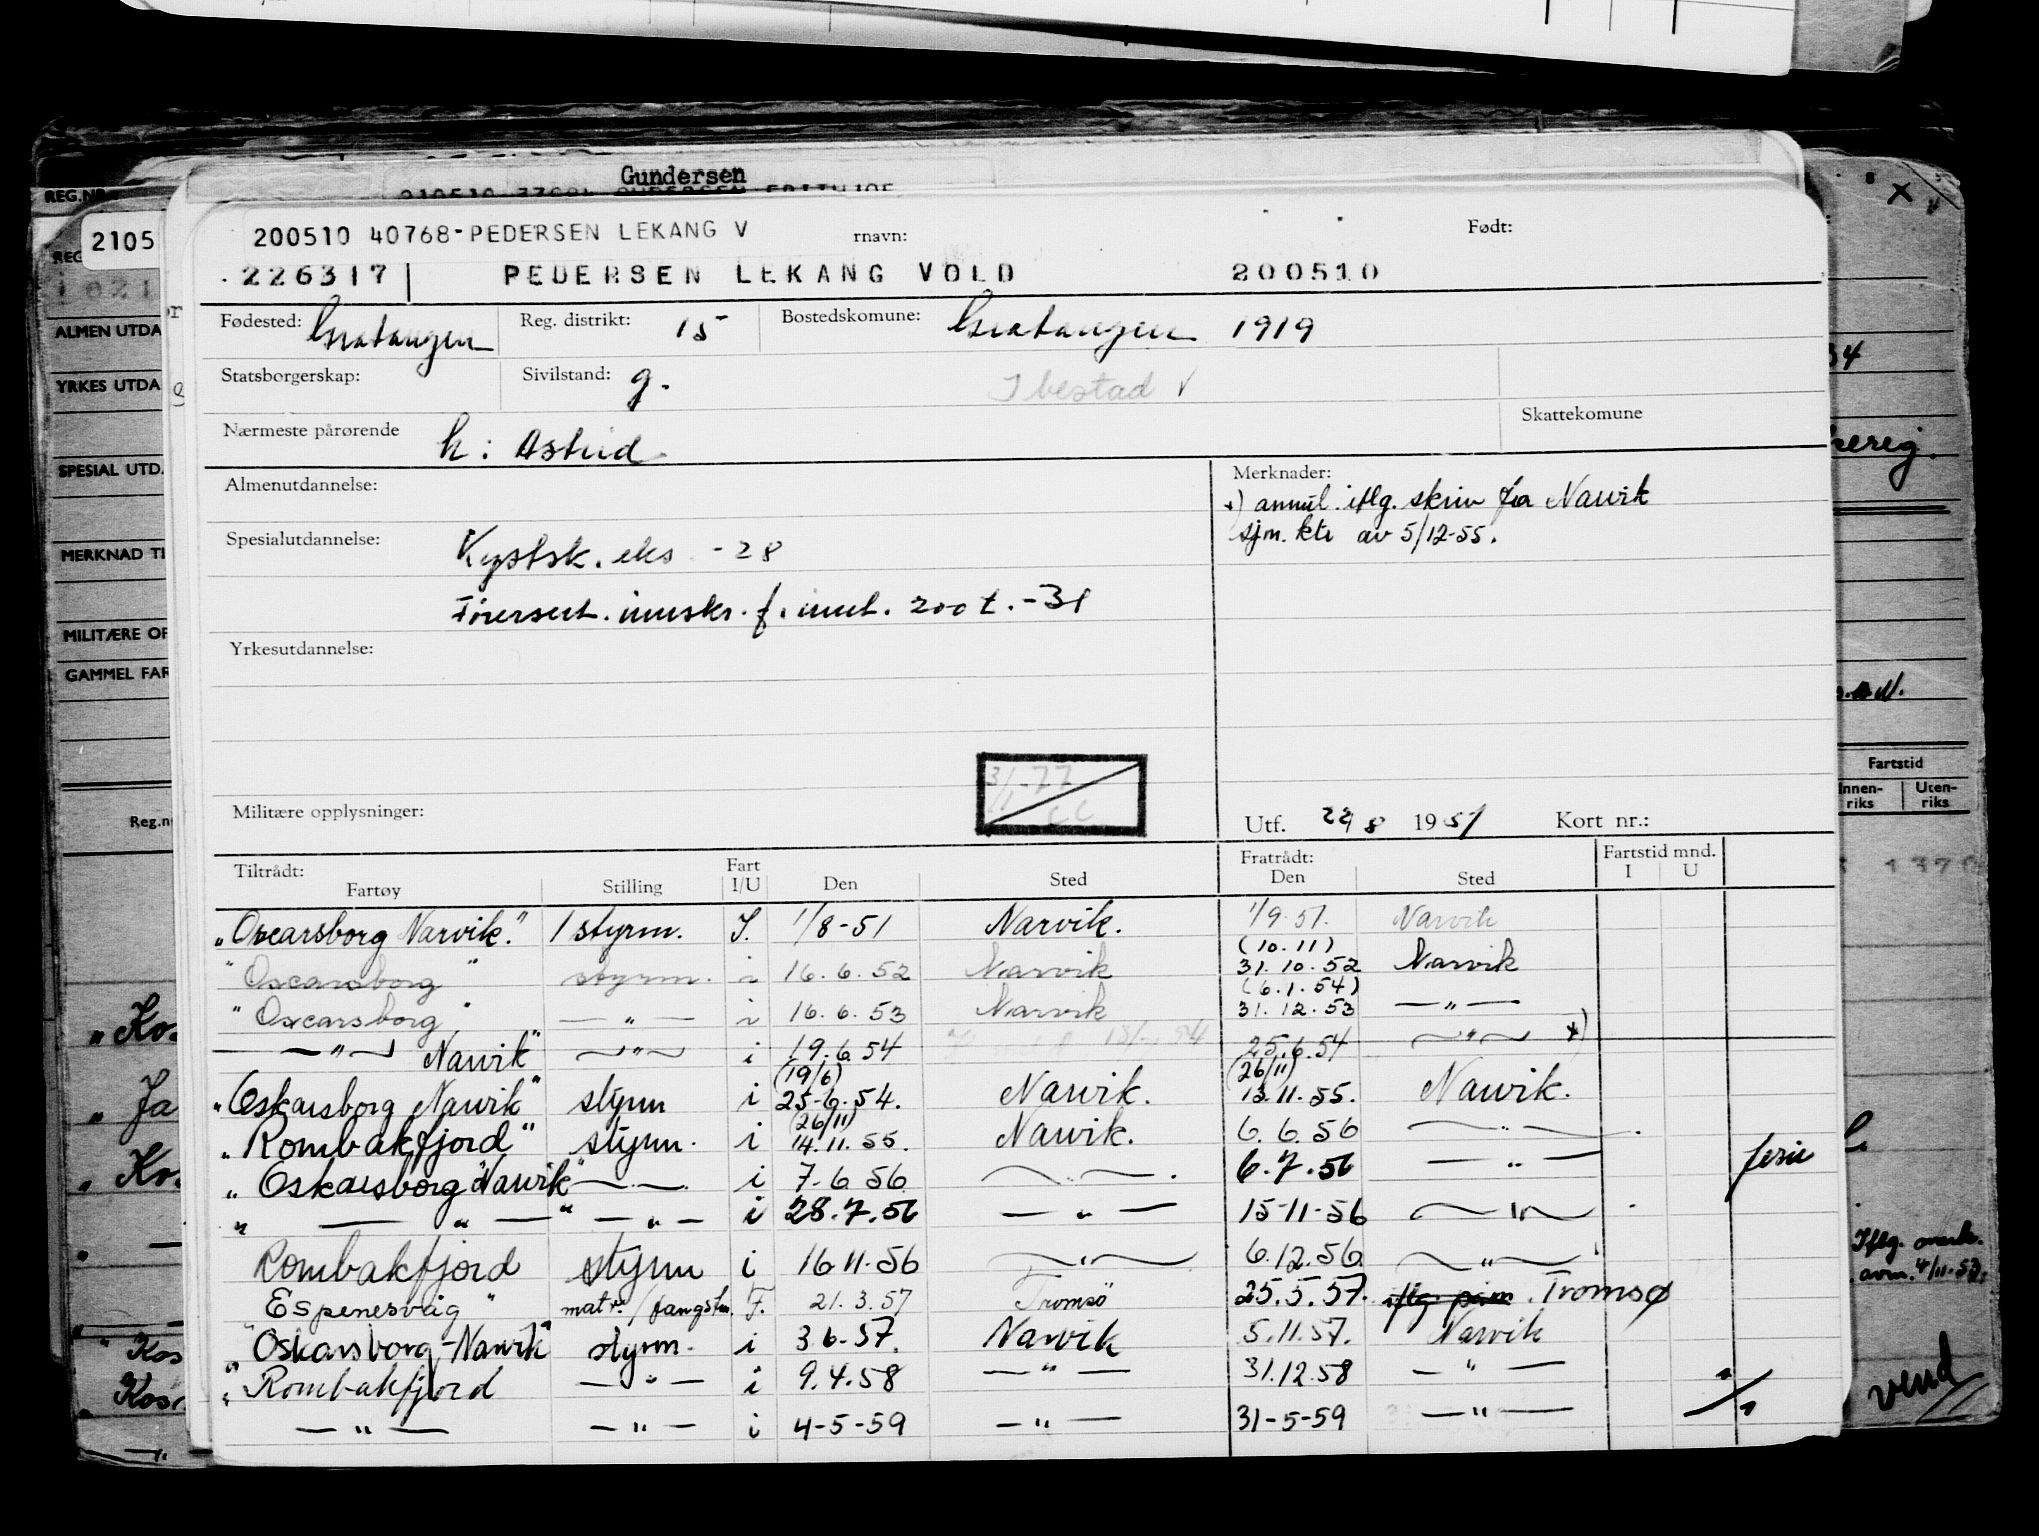 Gundersen
REG.NR.
2105
200510 40768-PEDERSEN LEKANG V
rnavn:
Født:
226317 PEDERSEN LEKANG VOLD 200510
Fødested: Gratangen Reg. distrikt: 15 Bostedskomune: Gratangen 1919
Statsborgerskap: Sivilstand: g. Ibestad V
Skattekomune
Nærmeste pårørende h: Astrid
Almenutdannelse:
Merknader:
*) annul. iflg. skriv fra Narvik
sjm. ktr av 5/12-55.
Spesialutdannelse: Kystsk. eks -28
Førersert. innskr. f. inut. 200 t. -31
Yrkesutdannelse:
Militære opplysninger:
Utf. 22/8 1951 Kort nr.:
Tiltrådt: Fart Fratrådt: Fartstid mnd.
Fartøy Stilling I/U Den Sted Den Sted I U
"Oscarsborg Narvik." 1 styrm. I. 1/8-51 Narvik. 1/9.51. Narvik
(10.11)
"Oscarsborg" styrm. i 16.6.52 Narvik 31.10.52 Narvik
(6.1.54)
"Oscarsborg" — " — i 16.6.53 Narvik 31.12.53 — " —
— " — Narvik" — " — i 19.6.54 25.6.54 — " — *)
(19/6) (26/11)
"Oskarsborg Narvik" styrm i 25-6.54. Narvik. 13.11.55. Narvik.
(26/11)
"Rombakfjord" styrm. i 14.11.55. Narvik. 6.6.56 — " —
"Oskarsborg Narvik" — " — i 7-6 56 — " — 6.7.56 — " — ferie
" — " — " — " — i 28.7.56 — " — 15-11-56 — " —
Rombakfjord styrm i 16.11.56 — " — 6.12.56. — " —
"Espenesvåg" matr. / fangstm. F. 21.3.57 Tromsø 25.5.57. Tromsø
"Oskarsborg-Narvik" styrm. i 3.6.57. Narvik 5.11.57. Narvik
"Rombakfjord — " — i 9.4.58 — " — 31.12.58 — " —
— " — — " — i 4-5-59 — " — 31-5-59 — " —
ALMEN UTDA
YRKES UTDA
SPESIAL UTD.
MERKNAD TI
MILITÆRE OP
GAMMEL FAR
Fartstid
Innen-riks
Uten-riks
vend